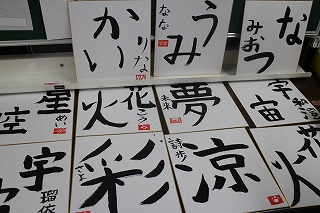 かい
りな
うみ
なな
なつ
みお
星空
めい
花火
こう
夢
未来
宇宙
宇
瑠依
彩
さよ
涼
詩歩
花火